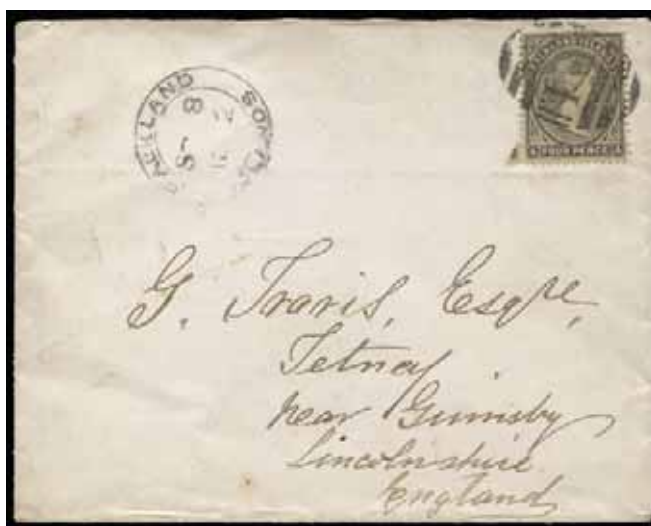 FOUR PENCE
G. Travis, Esqre,
Tetney
near Grimsby
Lincolnshire
England